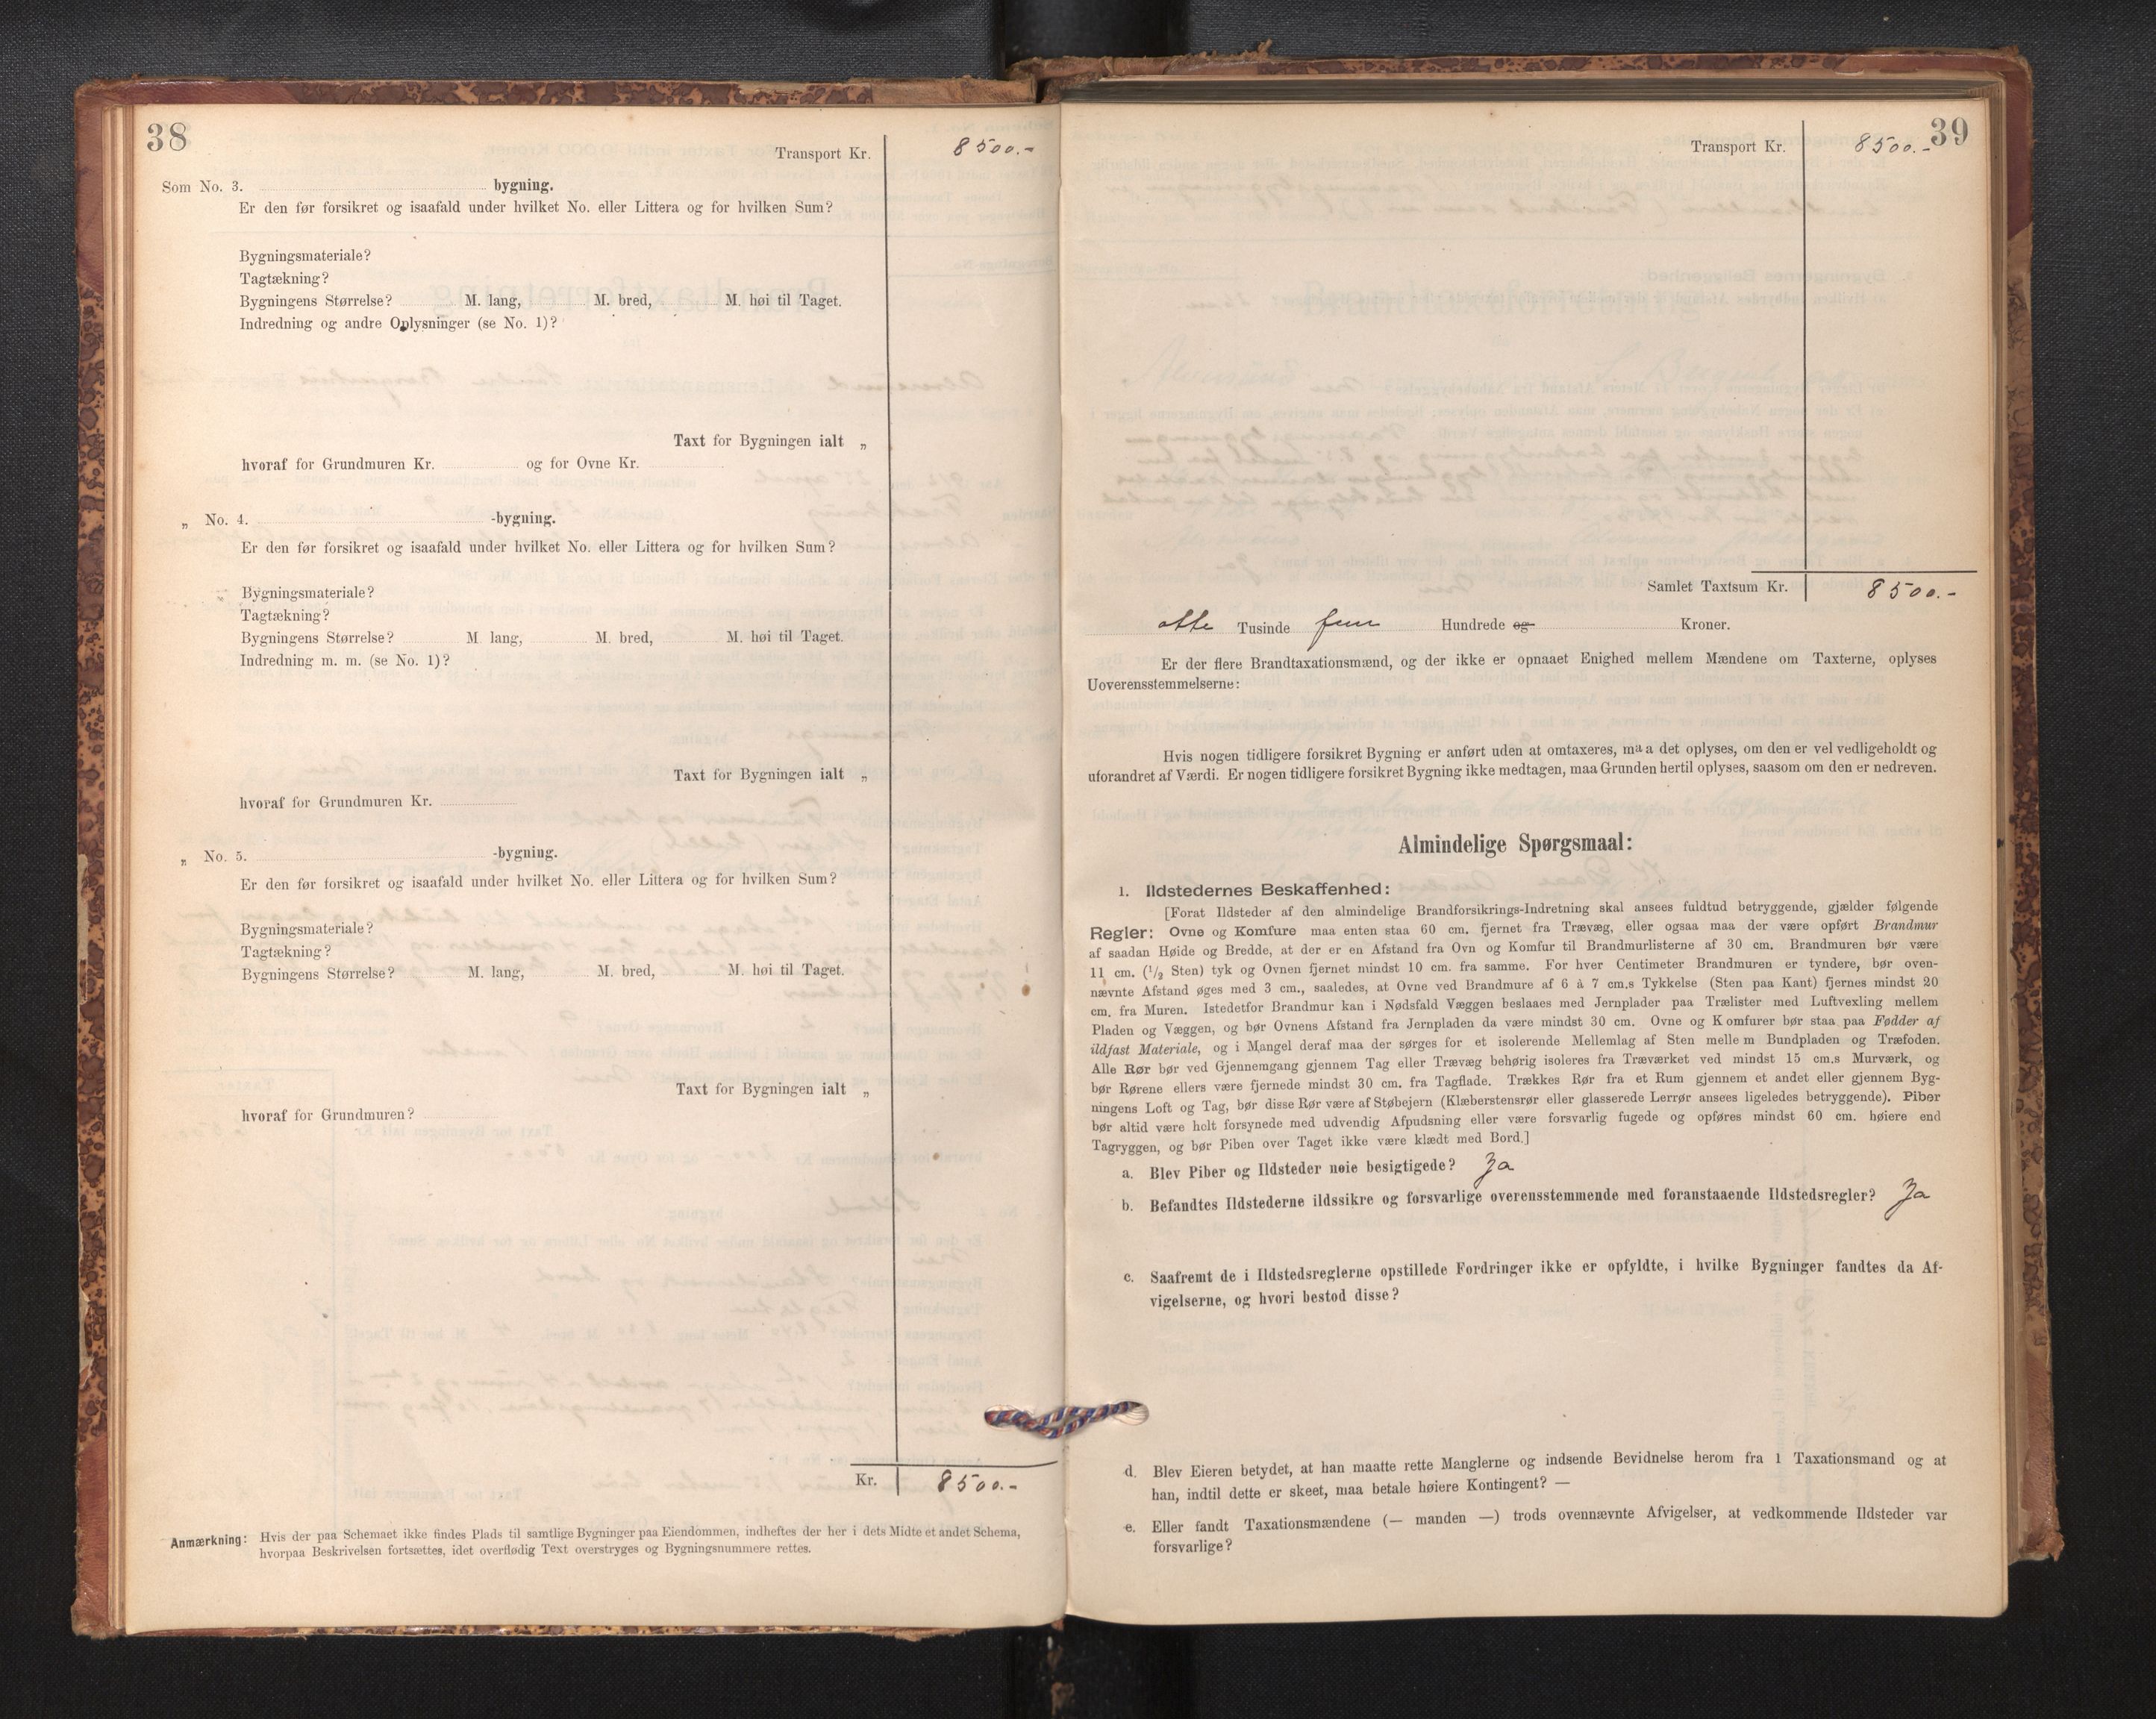 38
Transport Kr. 8500.-
Som No. 3. bygning.
Er den før forsikret og isaafald under hvilket No. eller Littera og for hvilken Sum?
Bygningsmateriale?
Tagtækning?
Bygningens Størrelse? M. lang, M. bred, M. høi til Taget.
Indredning og andre Oplysninger (se No. 1)?
Taxt for Bygningen ialt „
hvoraf for Grundmuren Kr. og for Ovne Kr.
„ No. 4. -bygning.
Er den før forsikret og isaafald under hvilket No. eller Littera og for hvilken Sum?
Bygningsmateriale?
Tagtækning?
Bygningens Størrelse? M. lang, M. bred, M. høi til Taget.
Indredning m. m. (se No. 1)?
Taxt for Bygningen ialt „
hvoraf for Grundmuren Kr.
„ No. 5. -bygning.
Er den før forsikret og isaafald under hvilket No. eller Littera og for hvilken Sum?
Bygningsmateriale?
Tagtækning?
Bygningens Størrelse? M. lang, M. bred, M. høi til Taget.
Taxt for Bygningen ialt „
hvoraf for Grundmuren?
Kr. 8500.-
Anmærkning: Hvis der paa Schemaet ikke findes Plads til samtlige Bygninger paa Eiendommen, indheftes der her i dets Midte et andet Schema,
hvorpaa Beskrivelsen fortsættes, idet overflødig Text overstryges og Bygningsnummere rettes.
39
Transport Kr. 8500.-
Samlet Taxtsum Kr. 8500.-
otte Tusinde fem Hundrede og Kroner.
Er der flere Brandtaxationsmænd, og der ikke er opnaaet Enighed mellem Mændene om Taxterne, oplyses
Uoverensstemmelserne:
Hvis nogen tidligere forsikret Bygning er anført uden at omtaxeres, maa det oplyses, om den er vel vedligeholdt og
uforandret af Værdi. Er nogen tidligere forsikret Bygning ikke medtagen, maa Grunden hertil oplyses, saasom om den er nedreven.
Almindelige Spørgsmaal:
1. Ildstedernes Beskaffenhed:
[Forat Ildsteder af den almindelige Brandforsikrings-Indretning skal ansees fuldtud betryggende, gjælder følgende
Regler: Ovne og Komfure maa enten staa 60 cm. fjernet fra Trævæg, eller ogsaa maa der være opført Brandmur
af saadan Høide og Bredde, at der er en Afstand fra Ovn og Komfur til Brandmurlisterne af 30 cm. Brandmuren bør være
11 cm. (1/2 Sten) tyk og Ovnen fjernet mindst 10 cm. fra samme. For hver Centimeter Brandmuren er tyndere, bør oven-
nævnte Afstand øges med 3 cm., saaledes, at Ovne ved Brandmure af 6 à 7 cm.s Tykkelse (Sten paa Kant) fjernes mindst 20
cm. fra Muren. Istedetfor Brandmur kan i Nødsfald Væggen beslaaes med Jernplader paa Trælister med Luftvexling mellem
Pladen og Væggen, og bør Ovnens Afstand fra Jernpladen da være mindst 30 cm. Ovne og Komfurer bør staa paa Fødder af
ildfast Materiale, og i Mangel deraf maa der sørges for et isolerende Mellemlag af Sten mellem Bundpladen og Træfoden.
Alle Rør bør ved Gjennemgang gjennem Tag eller Trævæg behørig isoleres fra Træværket ved mindst 15 cm.s Murværk, og
bør Rørene ellers være fjernede mindst 30 cm. fra Tagflade. Trækkes Rør fra et Rum gjennem et andet eller gjennem Byg-
ningens Loft og Tag, bør disse Rør være af Støbejern (Klæberstensrør eller glasserede Lerrør ansees ligeledes betryggende). Piber
bør altid være holt forsynede med udvendig Afpudsning eller være forsvarlig fugede og opføres mindst 60 cm. høiere end
Tagryggen, og bør Piben over Taget ikke være klædt med Bord.]
a. Blev Piber og Ildsteder nøie besigtigede? Ja
b. Befandtes Ildstederne ildssikre og forsvarlige overensstemmende med foranstaaende Ildstedsregler? Ja
c. Saafremt de i Ildstedsreglerne opstillede Fordringer ikke er opfyldte, i hvilke Bygninger fandtes da Af-
vigelserne, og hvori bestod disse?
d. Blev Eieren betydet, at han maatte rette Manglerne og indsende Bevidnelse herom fra 1 Taxationsmand og at
han, indtil dette er skeet, maa betale høiere Kontingent? —
e. Eller fandt Taxationsmændene (— manden —) trods ovennævnte Afvigelser, at vedkommende Ildsteder var
forsvarlige?